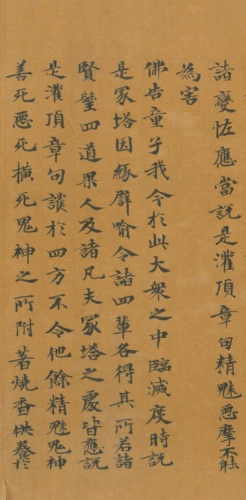 諸變怪應當說是灌頂章句精魅惡摩不能
為害
佛告童子我今於此大衆之中臨滅度時說
是冢塔因緣譬喻令諸四輩各得其所若諸
賢聖四道果人及諸凡夫冢塔之處皆應說
是灌頂章句護於四方不令他餘精魅鬼神
善死惡死橫死鬼神之所附著燒香供養於